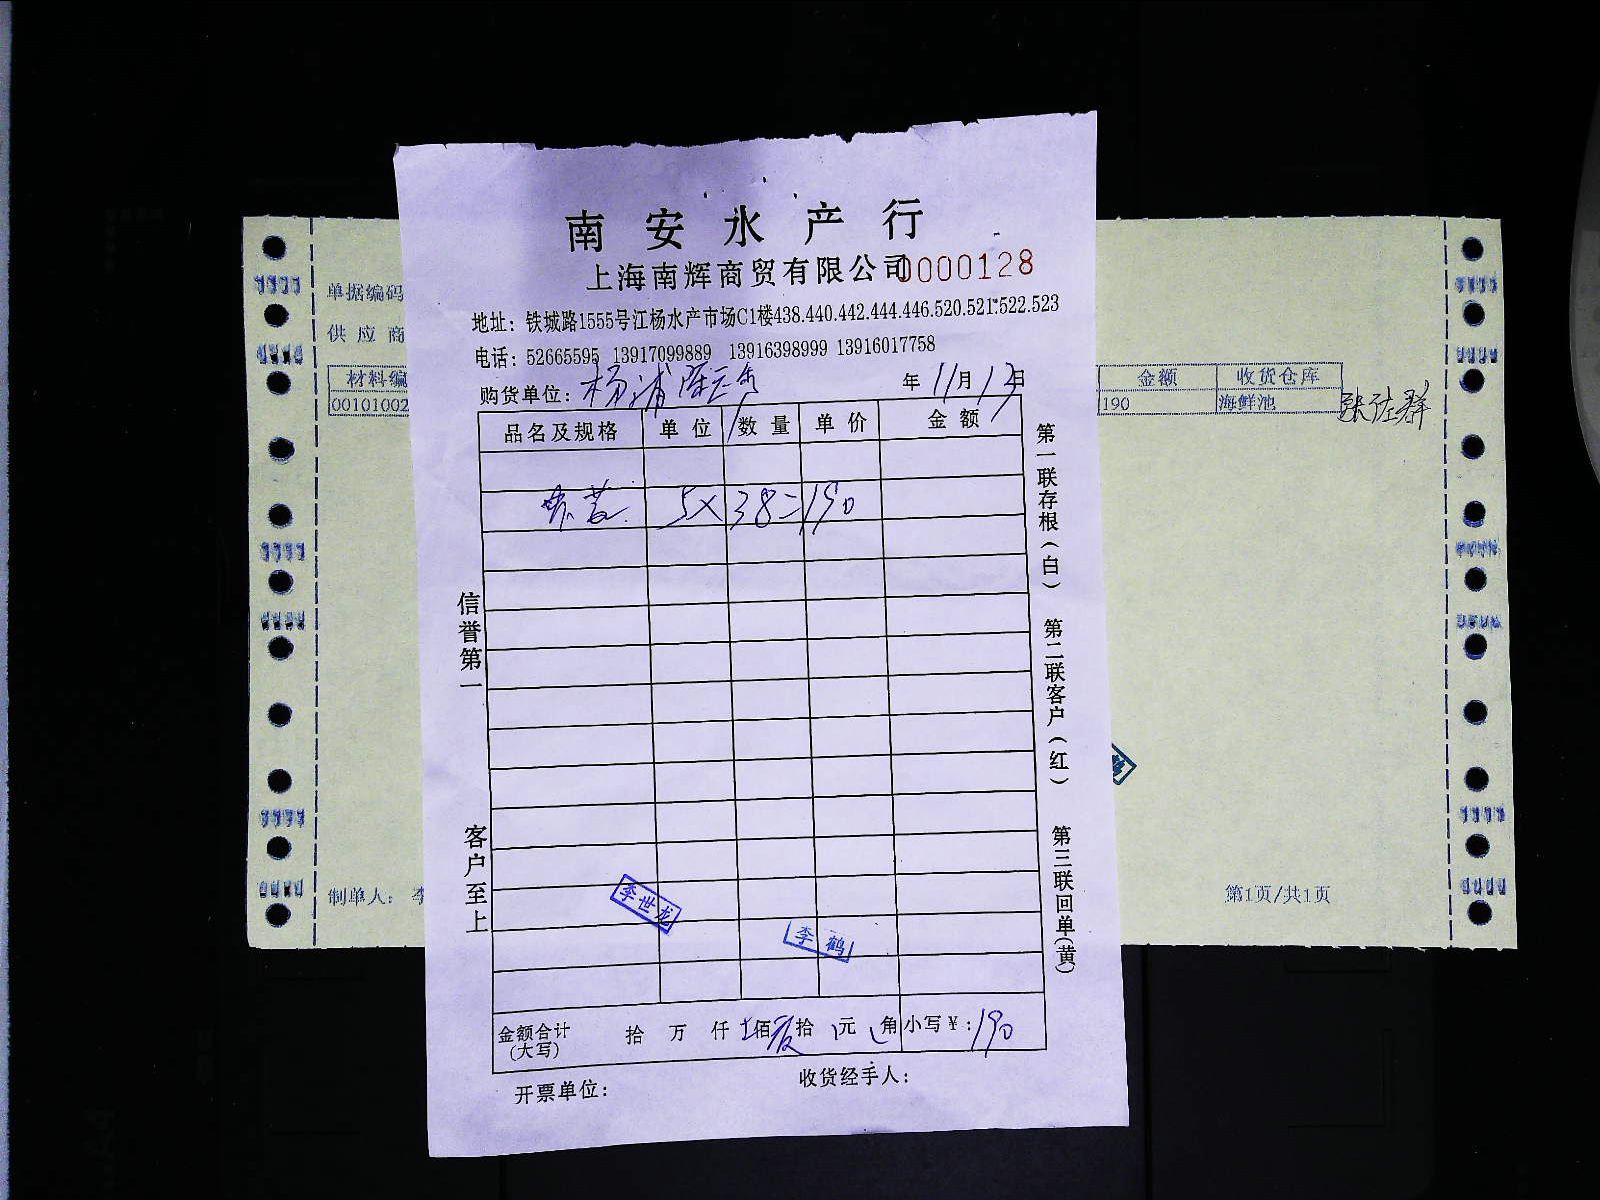 南安水产行
上海南辉商贸有限公司 0000128
地址：铁城路1555号江杨水产市场C1楼438.440.442.444.446.520.521.522.523
电话：52665595 13917099889 13916398999 13916017758
购货单位：杨浦 年11月13日
品名及规格 单位 数量 单价 金额
5×38=190
金额合计(大写) 拾 万 仟 佰 拾 元 角 小写￥：190
开票单位： 收货经手人：
信誉第一
客户至上
第一联存根（白）
第二联客户（红）
第三联回单(黄)
李世龙
李鹤
单据编码
供应商
材料编
00101002
金额 收货仓库
190 海鲜池
制单人：李
第1页/共1页